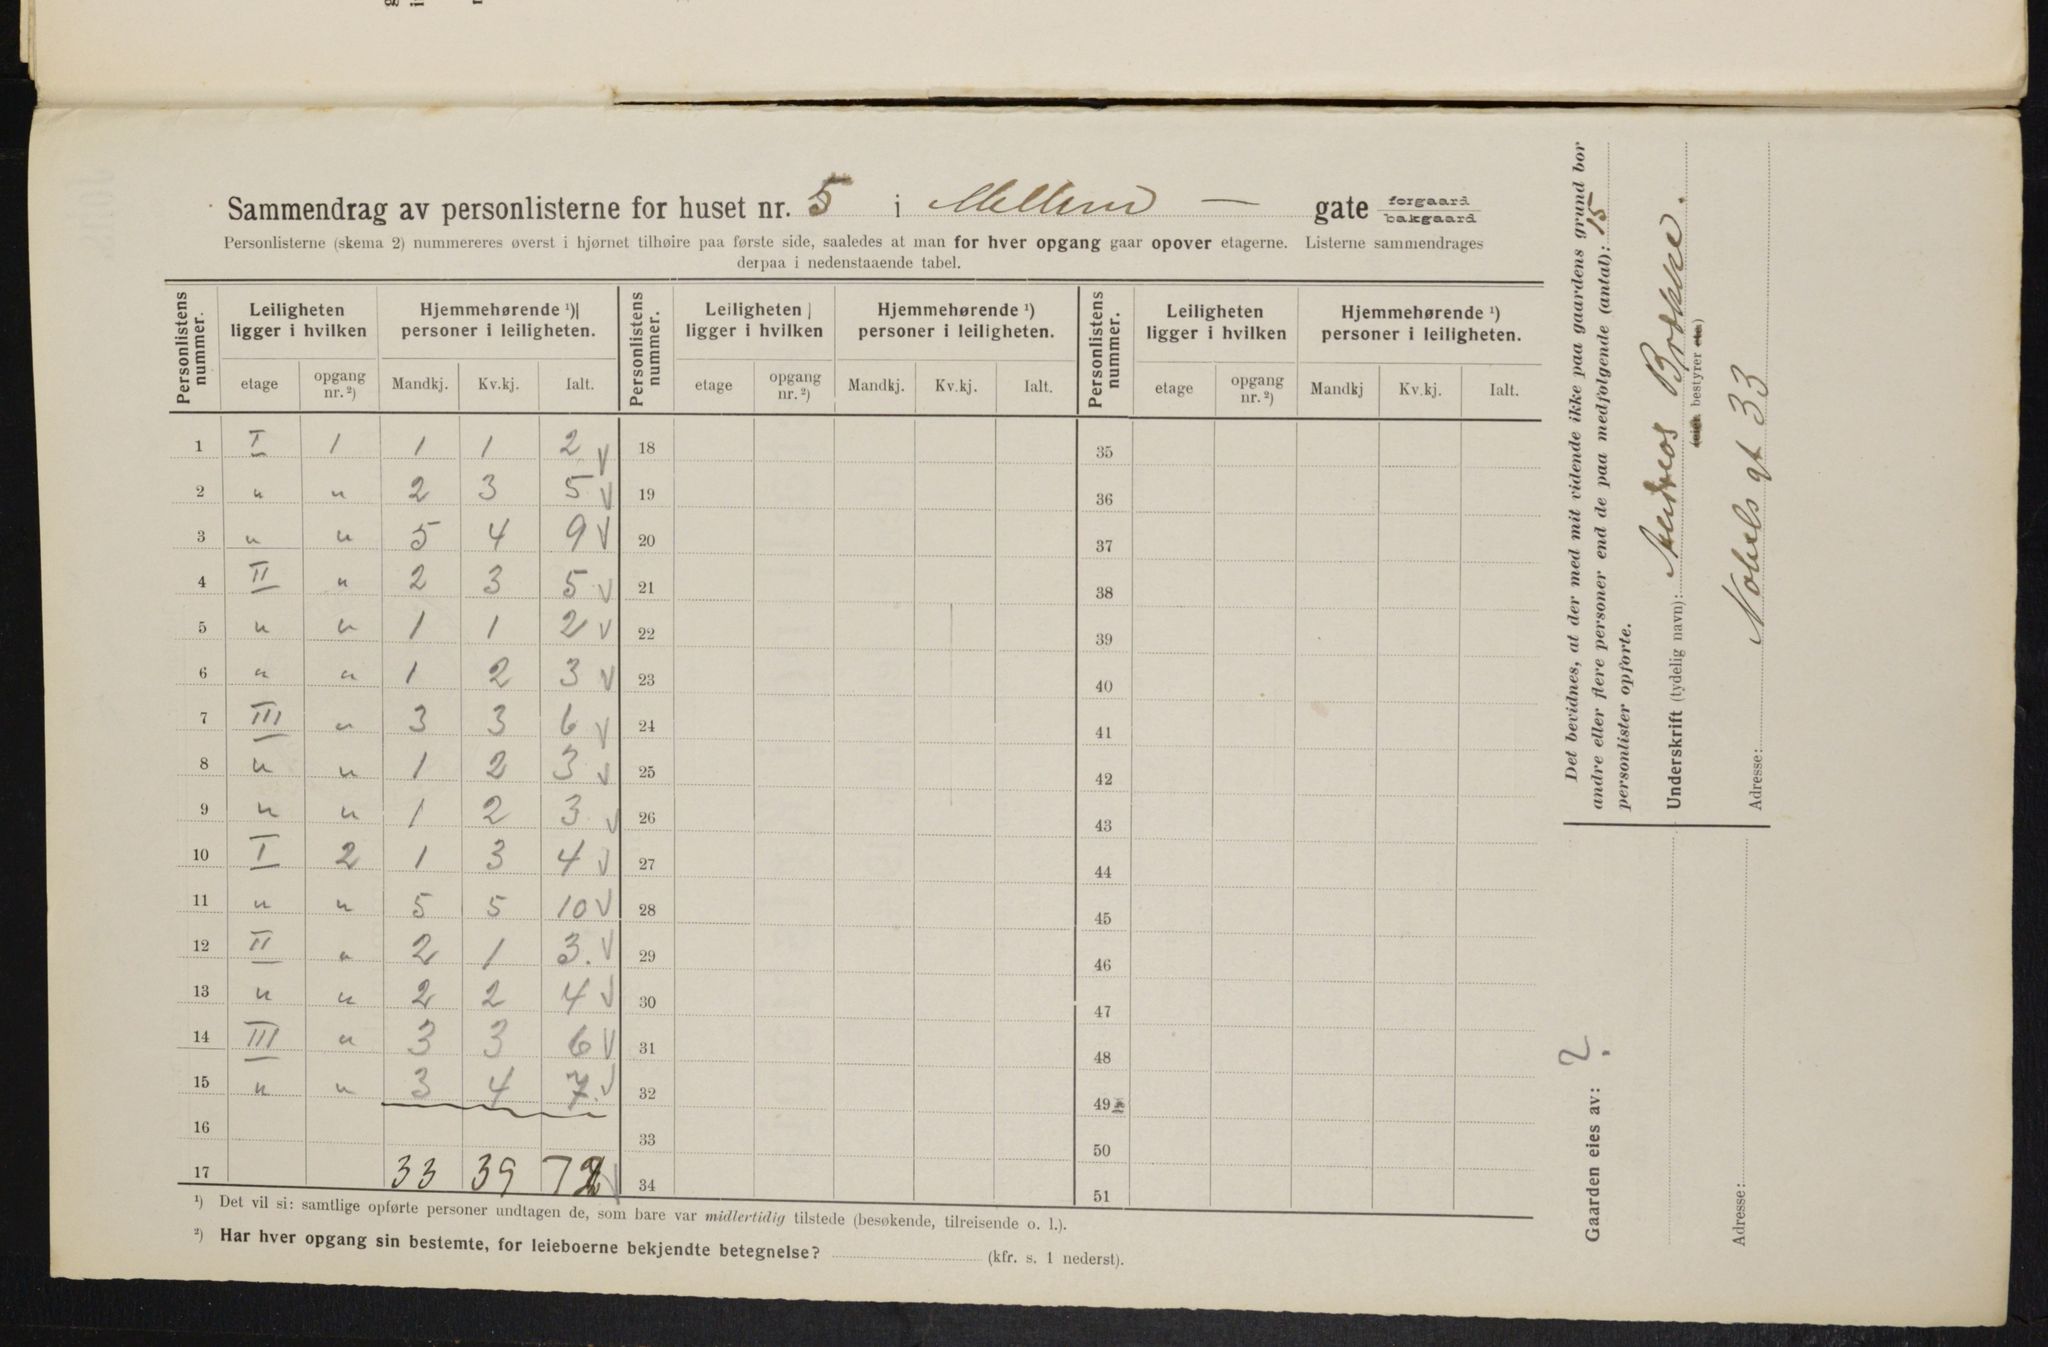 Sammendrag av personlisterne for huset nr. 5 i Mellem — gate forgaard bakgaard
Personlisterne (skema 2) nummereres øverst i hjørnet tilhøire paa første side, saaledes at man for hver opgang gaar opover etagerne. Listerne sammendrages
derpaa i nedenstaaende tabel.
Personlistens nummer. Leiligheten ligger i hvilken Hjemmehørende ¹) personer i leiligheten. Personlistens nummer. Leiligheten ligger i hvilken Hjemmehørende ¹) personer i leiligheten. Personlistens nummer. Leiligheten ligger i hvilken Hjemmehørende ¹) personer i leiligheten.
etage opgang nr. ²) Mandkj. Kv.kj. Ialt. etage opgang nr. ²) Mandkj. Kv.kj. Ialt. etage opgang nr. ²) Mandkj Kv.kj. Ialt.
1 I 1 1 1 2 √ 18 35
2 " " 2 3 5 √ 19 36
3 " " 5 4 9 √ 20 37
4 II " 2 3 5 √ 21 38
5 " " 1 1 2 √ 22 39
6 " " 1 2 3 √ 23 40
7 III " 3 3 6 √ 24 41
8 " " 1 2 3 √ 25 42
9 " " 1 2 3 √ 26 43
10 I 2 1 3 4 √ 27 44
11 " " 5 5 10 √ 28 45
12 II " 2 1 3. √ 29 46
13 " " 2 2 4 √ 30 47
14 III " 3 3 6 √ 31 48
15 " " 3 4 7. √ 32 49
16 33 50
17 33 39 72 √ 34 51
¹) Det vil si: samtlige opførte personer undtagen de, som bare var midlertidig tilstede (besøkende, tilreisende o. l.).
²) Har hver opgang sin bestemte, for leieboerne bekjendte betegnelse? (kfr. s. 1 nederst).
Det bevidnes, at der med mit vidende ikke paa gaardens grund bor
andre eller flere personer end de paa medfølgende (antal): 15
personlister opførte.
Underskrift (tydelig navn): Andreas Brække.
(eier bestyrer etc.)
Adresse: Nobels gt 33
Gaarden eies av: ?
Adresse: